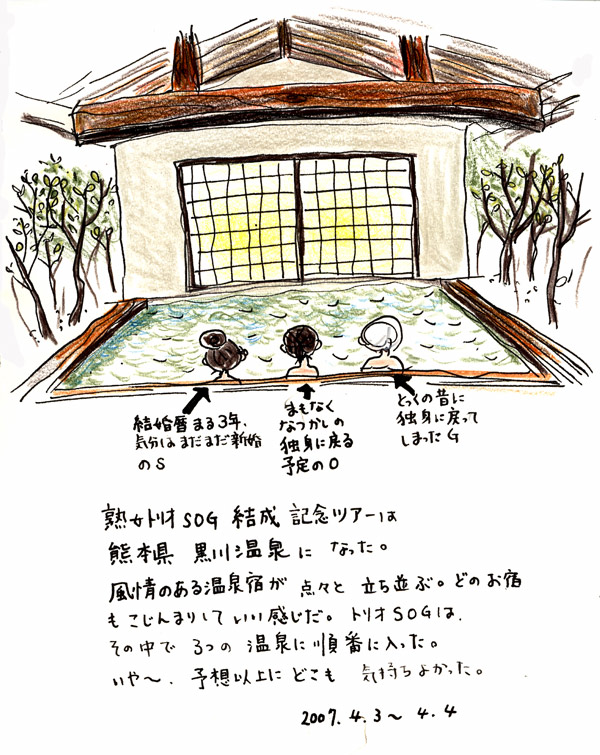 結婚暦まる3年、
気分はまだまだ新婚
のS
まもなく
なつかしの
独身に戻る
予定のO
とっくの昔に
独身に戻って
しまったG
熟女トリオSOG 結成 記念ツアーは
熊本県 黒川温泉に なった。
風情のある温泉宿が 点々と 立ち並ぶ。どのお宿
もこじんまりして いい感じだ。トリオSOGは、
その中で 3つの 温泉に順番に入った。
いや〜、予想以上に どこも 気持ちよかった。
2007.4.3〜4.4